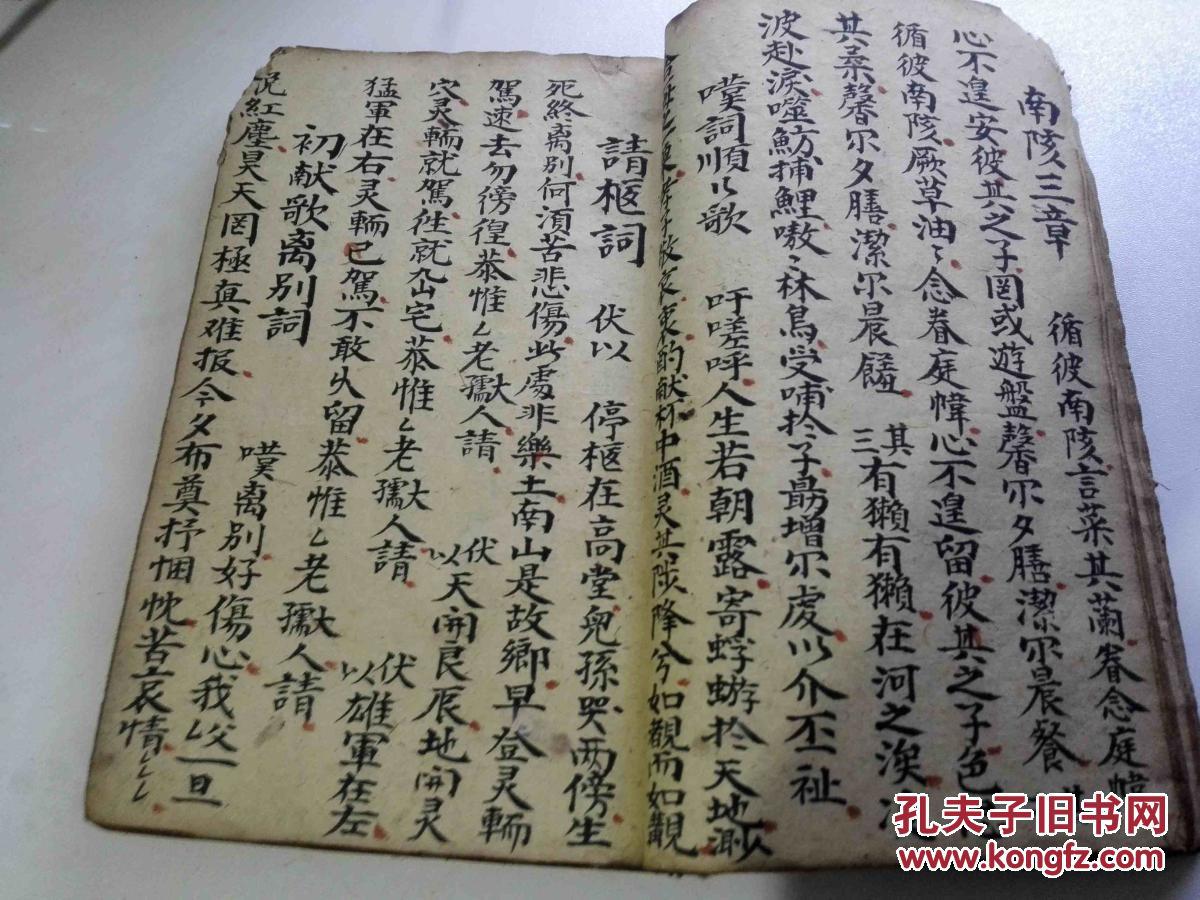 南陔三章 循彼南陔言菜其蘭眷念庭幃
心不遑安彼其之子罔或遊盤馨尔夕膳潔尔晨餐
循彼南陔厥草油〻念眷庭幃心不遑留彼其之子色
其菜馨尔夕膳潔尔晨饈 其三 有獺有獺在河之涘
波赴淚噬魴捕鯉嗷〻林烏受哺扵子勗增尔虔以介丕祉
嘆詞順〻歌 吁嗟呼人生若朝露寄蜉蝣扵天地渺
酌献杯中酒灵其陟降兮如觀而如觀
請柩詞 伏以 停柩在高堂兒孫哭两傍生
死終离別何須苦悲傷此處非樂土南山是故鄉早登灵輀
駕速去勿傍徨恭惟〻老孺人請 伏以 天開艮辰地開灵
穴灵輀就駕徃就山宅恭惟〻老孺人請 伏以 雄軍在左
猛軍在右灵輀已駕不敢久留恭惟〻老孺人請
初献歌离別詞 嘆离別好傷心我父一旦
紅塵昊天罔極真难报今夕布奠抒悃忱苦哀情
孔夫子旧书网
www.kongfz.com